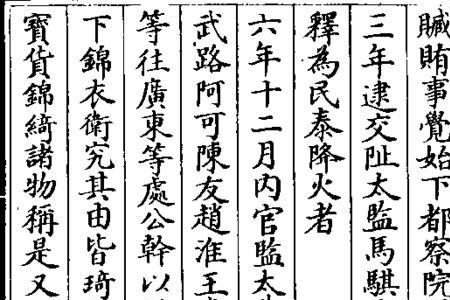 贓賄事覺始下都察院
三年逮交阯太監馬騏
釋為民泰降火者
六年十二月內官監太
武路阿可陳友趙淮王
等往廣東等處公幹以
下錦衣衛究其由皆琦
寳貨錦綺諸物稱是又